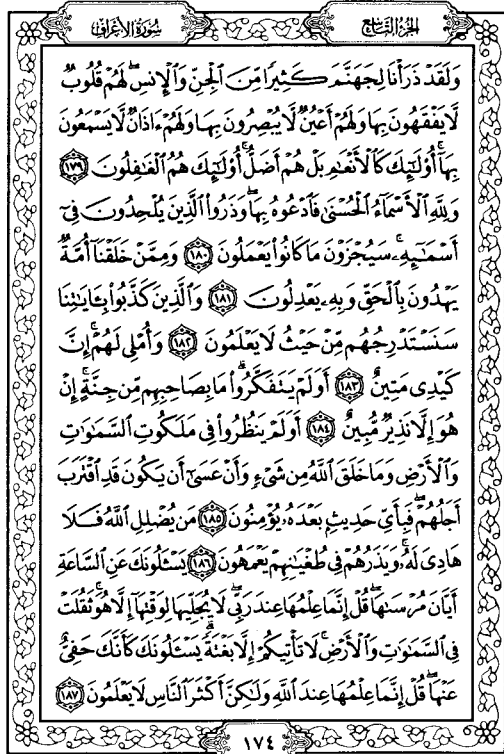 سورة الأعراف
الجزء التاسع
وَلَقَدْ ذَرَأْنَا لِجَهَنَّمَ كَثِيرًا مِّنَ ٱلْجِنِّ وَٱلْإِنسِ ۖ لَهُمْ قُلُوبٌ
لَّا يَفْقَهُونَ بِهَا وَلَهُمْ أَعْيُنٌ لَّا يُبْصِرُونَ بِهَا وَلَهُمْ ءَاذَانٌ لَّا يَسْمَعُونَ
بِهَآ ۚ أُو۟لَـٰٓئِكَ كَٱلْأَنْعَـٰمِ بَلْ هُمْ أَضَلُّ ۚ أُو۟لَـٰٓئِكَ هُمُ ٱلْغَـٰفِلُونَ ١٧٩
وَلِلَّهِ ٱلْأَسْمَآءُ ٱلْحُسْنَىٰ فَٱدْعُوهُ بِهَا ۖ وَذَرُوا۟ ٱلَّذِينَ يُلْحِدُونَ فِىٓ
أَسْمَـٰٓئِهِۦ ۚ سَيُجْزَوْنَ مَا كَانُوا۟ يَعْمَلُونَ ١٨٠ وَمِمَّنْ خَلَقْنَآ أُمَّةٌ
يَهْدُونَ بِٱلْحَقِّ وَبِهِۦ يَعْدِلُونَ ١٨١ وَٱلَّذِينَ كَذَّبُوا۟ بِـَٔايَـٰتِنَا
سَنَسْتَدْرِجُهُم مِّنْ حَيْثُ لَا يَعْلَمُونَ ١٨٢ وَأُمْلِى لَهُمْ ۚ إِنَّ
كَيْدِى مَتِينٌ ١٨٣ أَوَلَمْ يَتَفَكَّرُوا۟ ۗ مَا بِصَاحِبِهِم مِّن جِنَّةٍ ۚ إِنْ
هُوَ إِلَّا نَذِيرٌ مُّبِينٌ ١٨٤ أَوَلَمْ يَنظُرُوا۟ فِى مَلَكُوتِ ٱلسَّمَـٰوَٰتِ
وَٱلْأَرْضِ وَمَا خَلَقَ ٱللَّهُ مِن شَىْءٍ وَأَنْ عَسَىٰٓ أَن يَكُونَ قَدِ ٱقْتَرَبَ
أَجَلُهُمْ ۖ فَبِأَىِّ حَدِيثٍۭ بَعْدَهُۥ يُؤْمِنُونَ ١٨٥ مَن يُضْلِلِ ٱللَّهُ فَلَا
هَادِىَ لَهُۥ ۚ وَيَذَرُهُمْ فِى طُغْيَـٰنِهِمْ يَعْمَهُونَ ١٨٦ يَسْـَٔلُونَكَ عَنِ ٱلسَّاعَةِ
أَيَّانَ مُرْسَىٰهَا ۖ قُلْ إِنَّمَا عِلْمُهَا عِندَ رَبِّى ۖ لَا يُجَلِّيهَا لِوَقْتِهَآ إِلَّا هُوَ ۚ ثَقُلَتْ
فِى ٱلسَّمَـٰوَٰتِ وَٱلْأَرْضِ ۚ لَا تَأْتِيكُمْ إِلَّا بَغْتَةً ۗ يَسْـَٔلُونَكَ كَأَنَّكَ حَفِىٌّ
عَنْهَا ۖ قُلْ إِنَّمَا عِلْمُهَا عِندَ ٱللَّهِ وَلَـٰكِنَّ أَكْثَرَ ٱلنَّاسِ لَا يَعْلَمُونَ ١٨٧
١٧٤